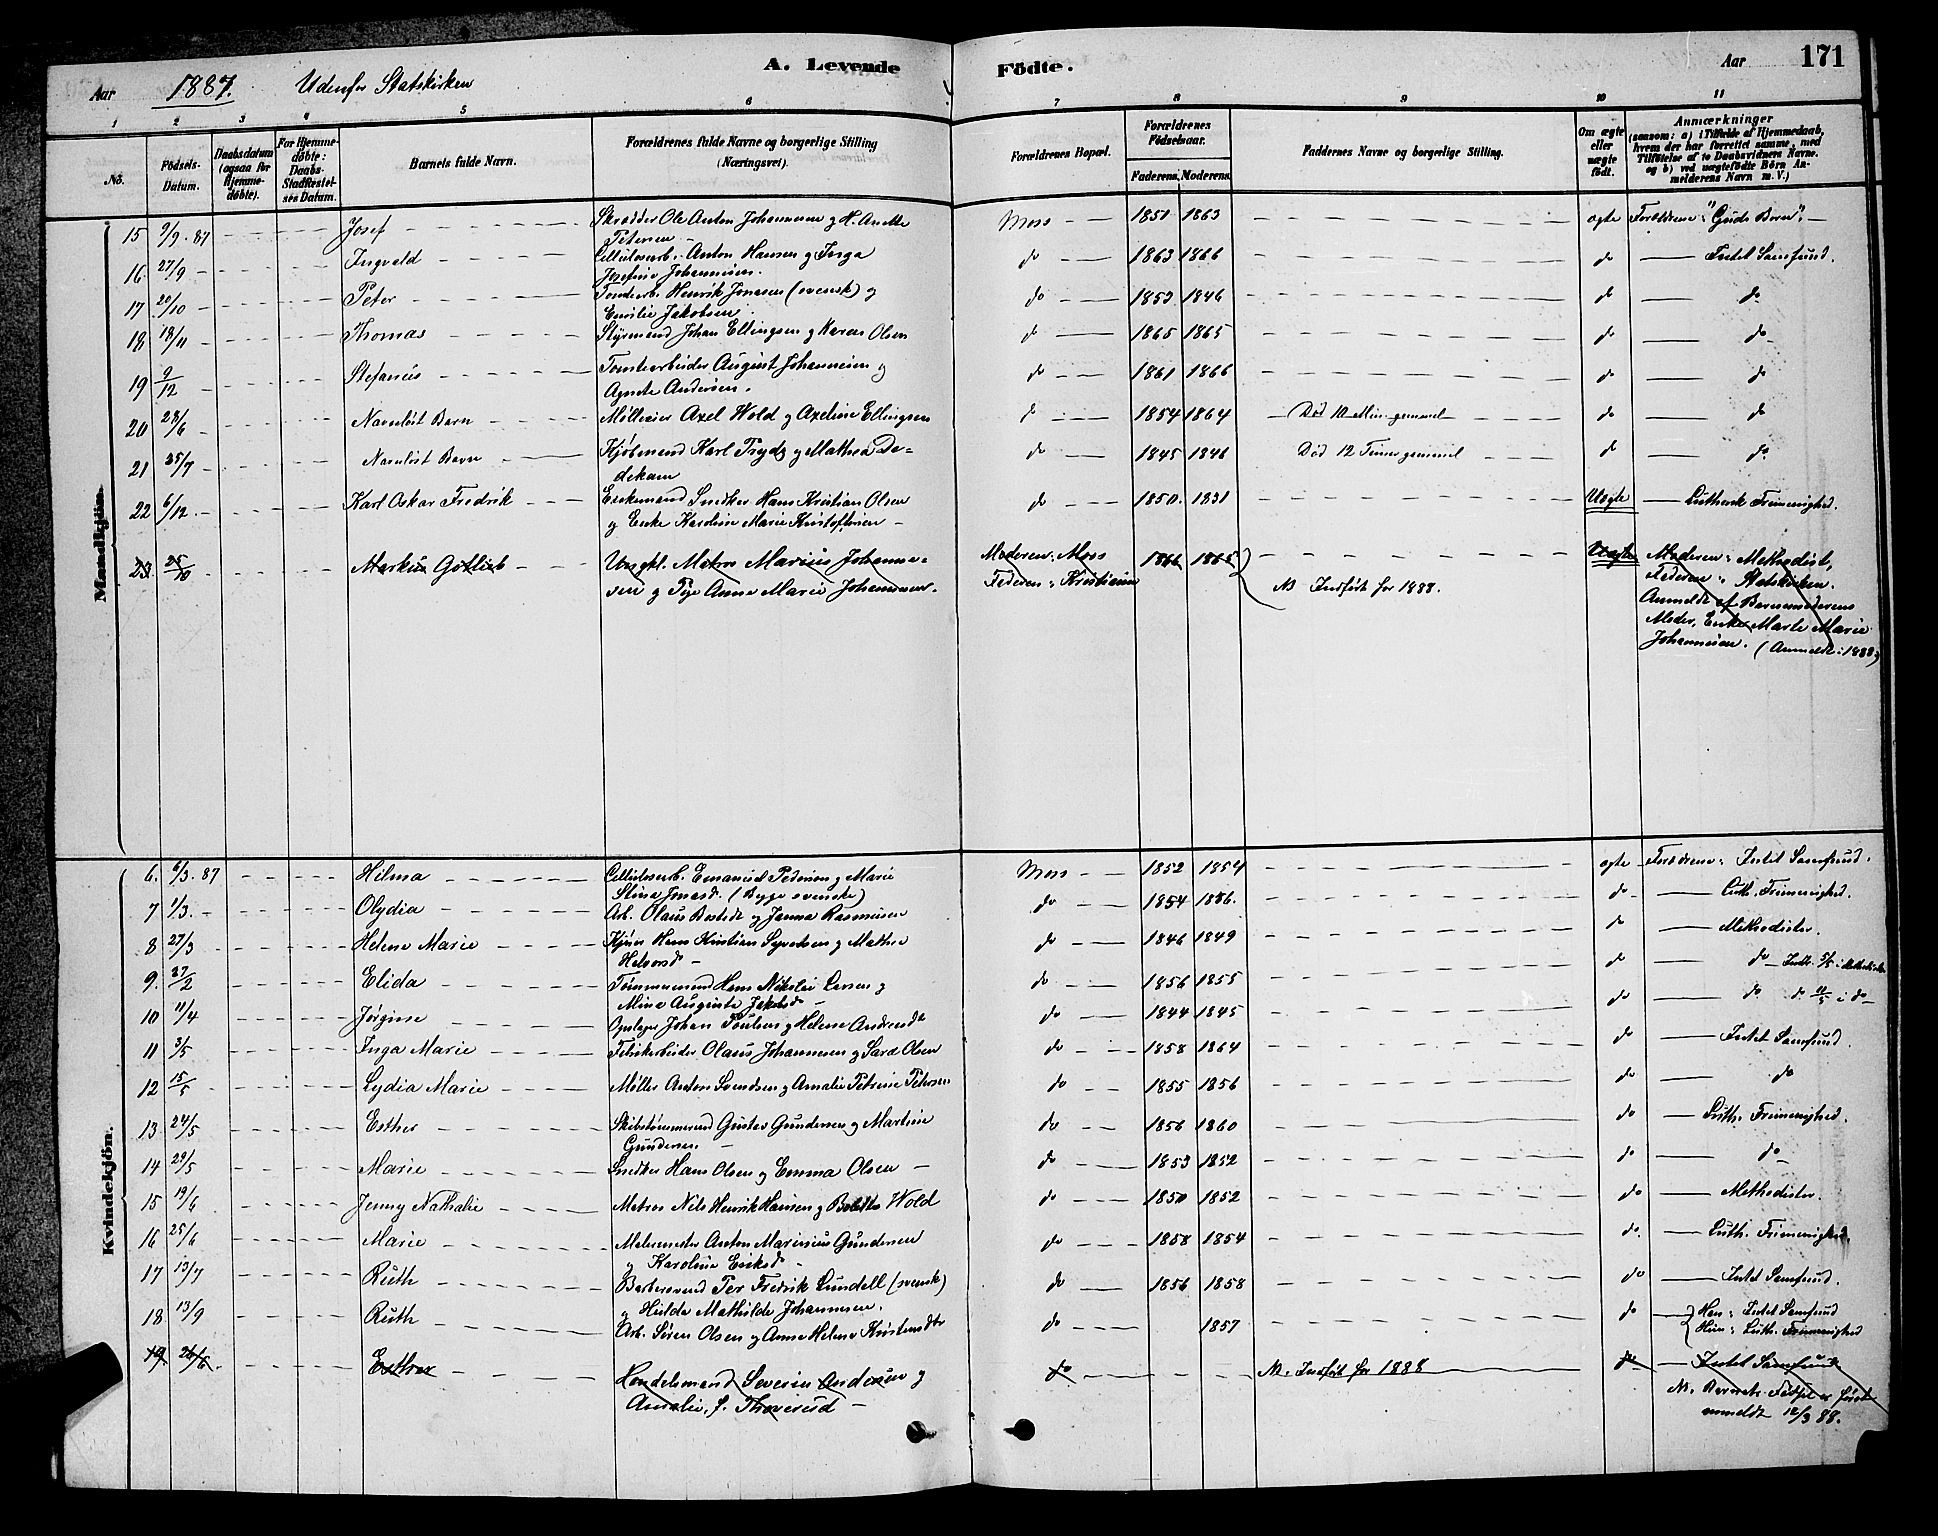 Aar 1887. Udenfor Statskirken A. Levende Födte. Aar 171
1 2 3 4 5 6 7 8 9 10 11
No. Födsels-Datum. Daabsdatum (ogsaa for Hjemmedøbte). For Hjemmedøbte: Daabs-Stadfæstelses Datum. Barnets fulde Navn. Forældrenes fulde Navne og borgerlige Stilling (Næringsvei). Forældrenes Bopæl. Forældrenes Födselsaar. Faderens. Moderens. Faddernes Navne og borgerlige Stilling. Om ægte eller uægte født. Anmærkninger (saasom: a) i Tilfælde af Hjemmedaab, hvem der har forrettet samme, med Tilföielse af to Daabsvidners Navne. og b) ved uægtefødte Börn Anmelderens Navn m. V.)
Mandkjön.
15 9/9 87 Josef Skrædder Ole Anton Johannesen g H. Anette Petersen Moss 1851 1863 ægte Forældrene: "Guds Børn".
16 27/9 Ingvald Cellulosearb. Anton Hansen g Inga Josefine Johannesen. do 1863 1866 do Intet Samfund.
17 20/10 Peter Tomtearb. Henrik Jonasen (svensk) g Emilie Jakobsen do 1853 1846 do do
18 18/11 Thomas Styrmand Johan Ellingsen g Karen Olsen do 1865 1865 do do
19 9/12 Stefanus Tomtearbeider August Johannesen g Agnete Andersen. do 1861 1866 do do
20 23/6 Navnløst Barn Mølleeier Axel Wold g Axeline Ellingsen do 1854 1864 Død 10 Min. gammel do do
21 25/7 Navnløst Barn Kjøbmand Karl Trydz g Mathea Dedekam do 1845 1846 Død 12 Timer gammel do do
22 6/12 Karl Oskar Fredrik Enkemand Snedker Hans Kristian Olsen g Enke Karoline Marie Kristoffersen do 1850. 1831 Uægte Luthersk Frimenighed.
23. 25/10 Markus Gottlieb Ungkl. Matros Marius Johannesen g Pige Anne Marie Johannesen. Moderen: Moss Faderen: Kristiania 1866 1865 M Indført for 1888. Uægte Moderen: Methodist, Faderen: Statskirken. Anmeldt af Barnemoderens Moder, Enke Marte Marie Johannesen. (Anmeldt i 1888)
Kvindekjön.
6. 6/3 87 Hilma Cellulosearb. Emanuel Pedersen g Marie Stina Jonasd. (Begge svenske) Moss 1852 1854 ægte Forældrene: Intet Samfund.
7 1/3 Olydia Arb. Olaus Bostedt g Janna Rasmussen do 1854 1856. do Luth. Frimenighed.
8 27/3 Helene Marie Hans Kristian Syvertsen g Mathea Halvorsd. do 1846 1849 do Methodister.
9. 27/2 Elida Tømmermand Hans Nikolai Larsen g Mina Augusta Jakobsd. do 1856 1855 do do Indtr. 5/5 i Methodistk.
10 11/4 Jørgine Opslager Johan Poulsen g Helene Andreasdt do 1844 1845 do do do 11/5 i do
11 3/5 Inga Marie Fabrikarbeider Olaus Johannesen g Sara Olsen do 1858 1864 do Intet Samfund.
12 15/5 Lydia Marie Møller Anton Svendsen g Amalie Petrine Petersen do 1855 1856 do do
13. 24/5 Esther Skibstømmermand Gustav Gundersen g Martine Gundersen. do 1856 1860 do Luth. Frimenighed.
14 29/5 Marie Snedker Hans Olsen g Emma Olsen do 1853 1852 do do
15 19/6 Jenny Nathalie Matros Nils Henrik Hansen g Bolette Wold do 1850 1852 do Methodister.
16 25/6 Marie Malermester Anton Marinius Gundersen g Karoline Eriksd. do 1858 1854 do. Luth. Frimenighed.
17 13/7 Ruth Barbersvend Per Fredrik Lundell (svensk) g Hulda Mathilde Johannesen. do 1856 1858 do Intet Samfund.
18 13/9 Ruth Arb. Søren Olsen g Anne Helene Kristensdtr do 1857 do Han: Intet Samfund Hun: Luth. Frimenighed
19 26/6. Esther Handelsmand Severin Andersen g Amalie, f. Thoresrud do M. Indført for 1888 do Intet Samfund M. Barnets Fødsel er først anmeldt 12/3 88.